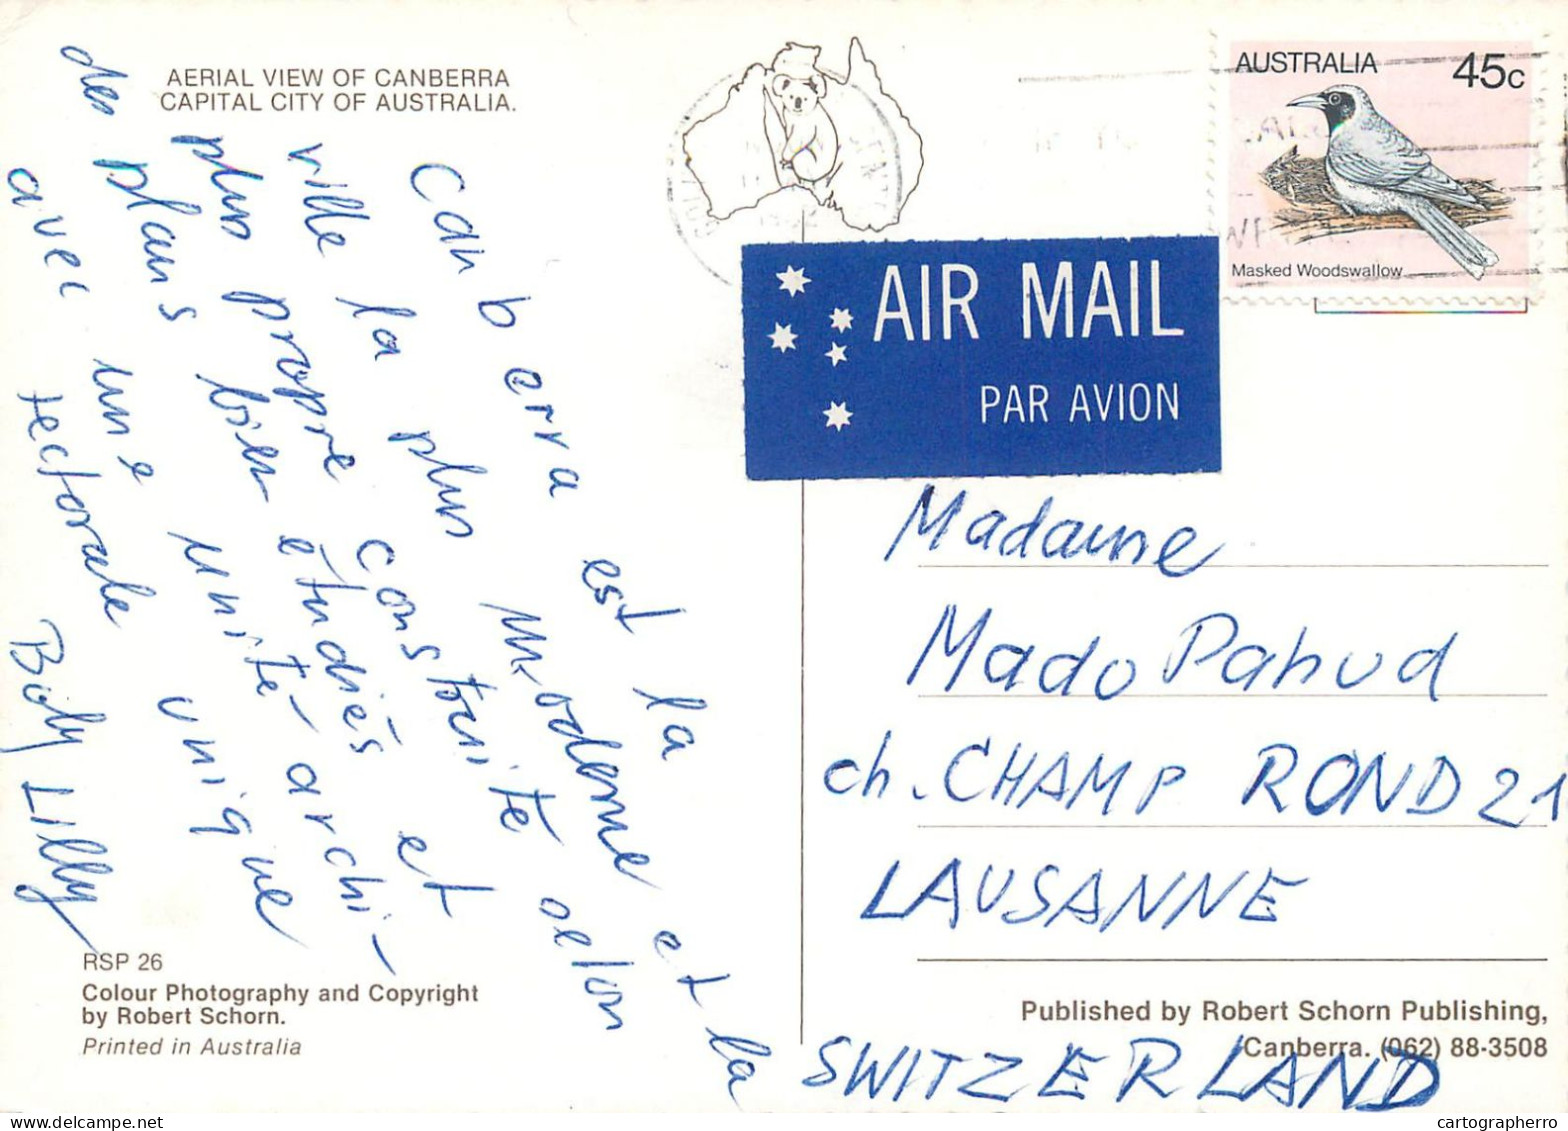 AERIAL VIEW OF CANBERRA
CAPITAL CITY OF AUSTRALIA.
Canberra est la
ville la plus moderne et la
plus propre construite selon
des plans bien étudiés et
avec une unité archi-
tecturale unique
Lilly
RSP 26
Colour Photography and Copyright
by Robert Schorn.
Printed in Australia
AUSTRALIA 45c
Masked Woodswallow
AIR MAIL
PAR AVION
Madame
Mado Pahud
ch. CHAMP ROND 21
LAUSANNE
SWITZERLAND
Published by Robert Schorn Publishing,
Canberra. (062) 88-3508
cartographerro